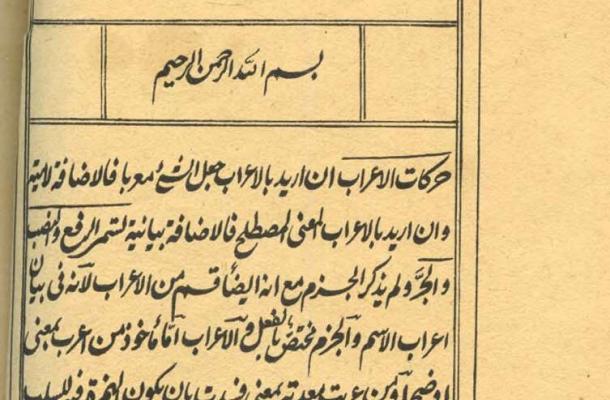 بسم الله الرحمن الرحيم
حركات الاعراب ان اريد بالاعراب جعل الشئ معربا فالاضافة لامية
وان اريد بالاعراب المعنى المصطلح فالاضافة بيانية لتسمى الرفع والنصب
والجر ولم يذكر الجزم مع انه ايضا قسم من الاعراب لانه فى بيان
اعراب الاسم والجزم مختص بالفعل والاعراب اما ماخوذ من اعرب بمعنى
اوضح او من عربت معدته بمعنى فسدت بان يكون الهمزة فيه للسلب